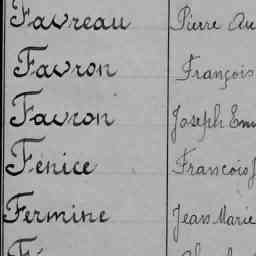 Favreau Pierre Au
Favron François
Favron Joseph Em
Fénice Francois J
Fermine Jean Marie